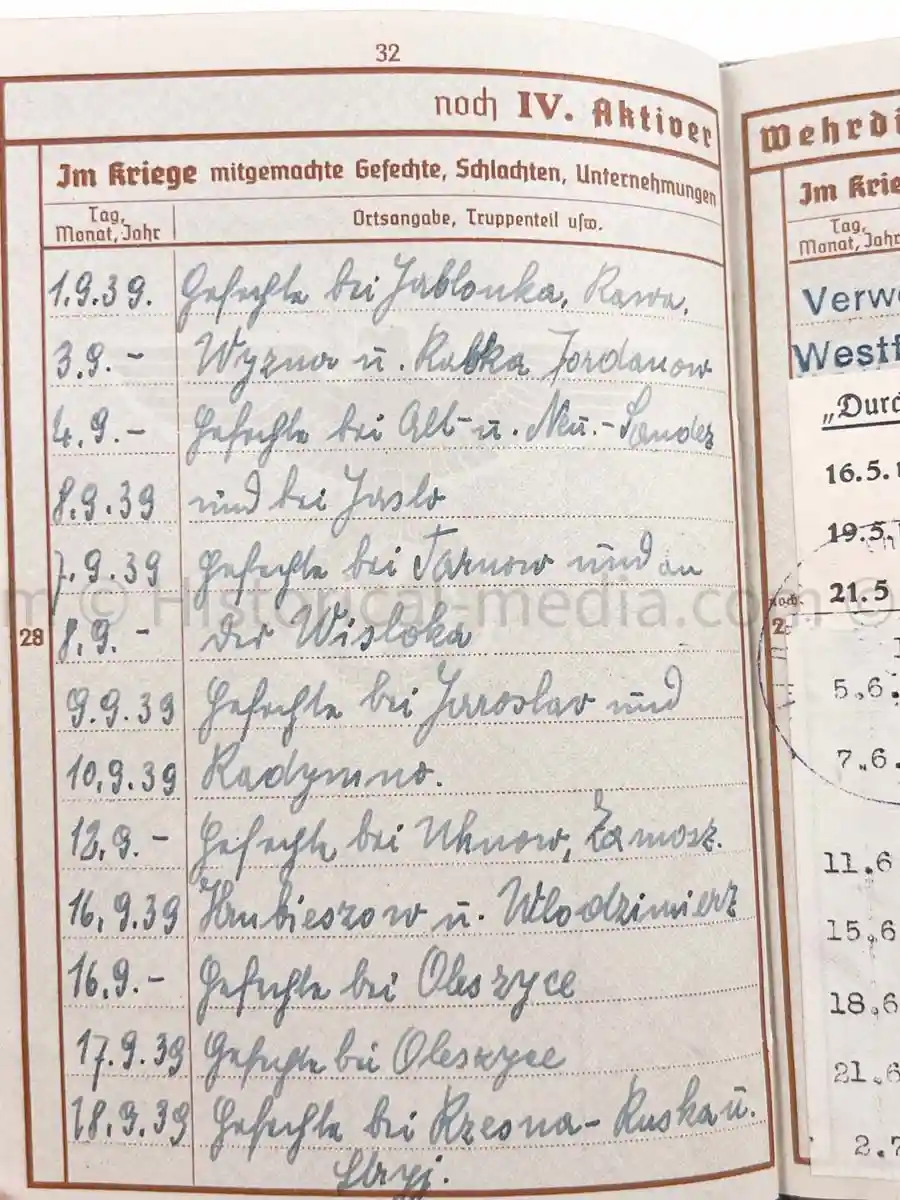 32
noch IV. Aktiver
Im Kriege mitgemachte Gefechte, Schlachten, Unternehmungen
Tag, Monat, Jahr
Ortsangabe, Truppenteil usw.
1.9.39. Gefechte bei Jablonka, Rawa,
3.9.- Wyzna u. Rabka Jordanow
4.9.- Gefechte bei Alt- u. Neu.-Sandez
8.9.39 und bei Jaslo
7.9.39 Gefechte bei Tarnow und an
28
8.9.- der Wisloka
9.9.39 Gefechte bei Jaroslav und
10.9.39 Radymno.
12.9.- Gefechte bei Uhnow, Zamosz.
16.9.39 Hrubieszow u. Wlodzimierz
16.9.- Gefechte bei Oleszyce
17.9.39 Gefechte bei Oleszyce
18.9.39 Gefechte bei Rzesna-Ruska u.
Stryj.
© Historical-media.com ©
Wehrdi
Im Krie
Tag,
Monat, Jahr
Verw
Westf
„Durc
16.5.
19.5.
21.5
noch
2
5.6.
7.6.
11.6
15.6
18.6
21.6
2.7